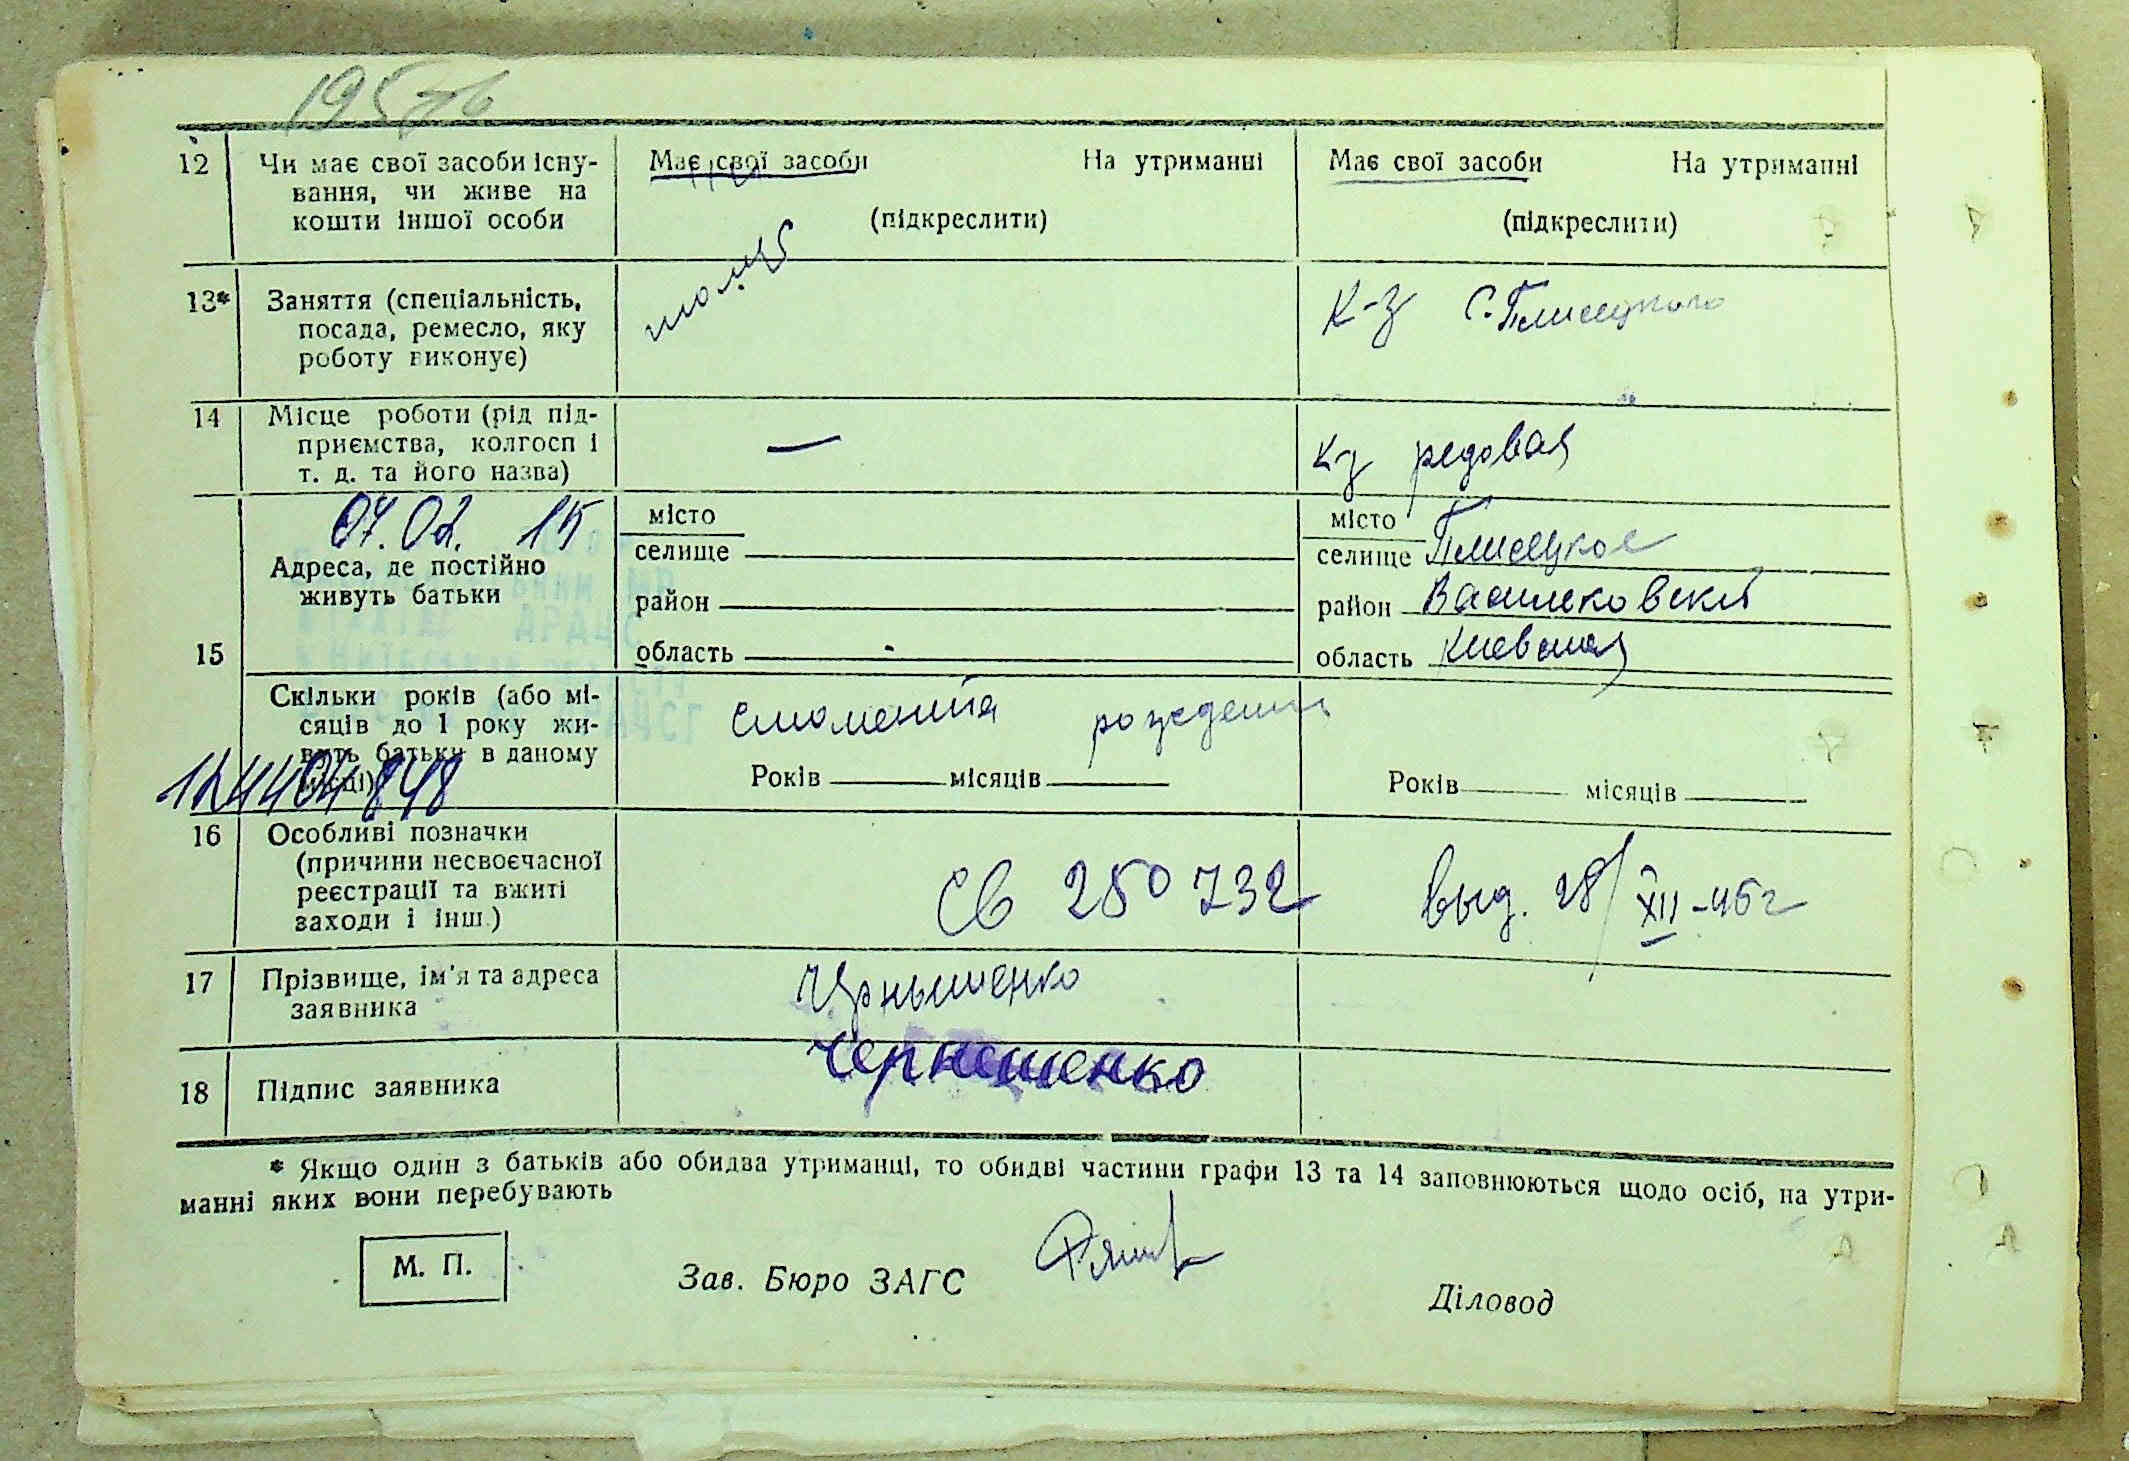 12 Чи має свої засоби існу-
вання, чи живе на
кошти іншої особи
Має свої засоби На утриманні
(підкреслити)
Має свої засоби На утриманні
(підкреслити)
13* Заняття (спеціальність,
посада, ремесло, яку
роботу виконує)
К-з с. Плисецкого
14 Місце роботи (рід під-
приємства, колгосп і
т. д. та його назва)
—
к-з редовая
07.02. 15
15 Адреса, де постійно
живуть батьки
місто
селище
район
область
місто
селище Плисецкое
район Васильковский
область Киевская
Скільки років (або мі-
сяців до 1 року жи-
вуть батьки в даному
місці)
124404848
с момента рождения
Років місяців
Років місяців
16 Особливі позначки
(причини несвоєчасної
реєстрації та вжиті
заходи і інш.)
Св 250732 выд. 28/XII-45г
17 Прізвище, ім'я та адреса
заявника
Чернышенко
18 Підпис заявника
Чернишенко
* Якщо один з батьків або обидва утриманці, то обидві частини графи 13 та 14 заповнюються щодо осіб, на утри-
манні яких вони перебувають
М. П.
Зав. Бюро ЗАГС
Діловод